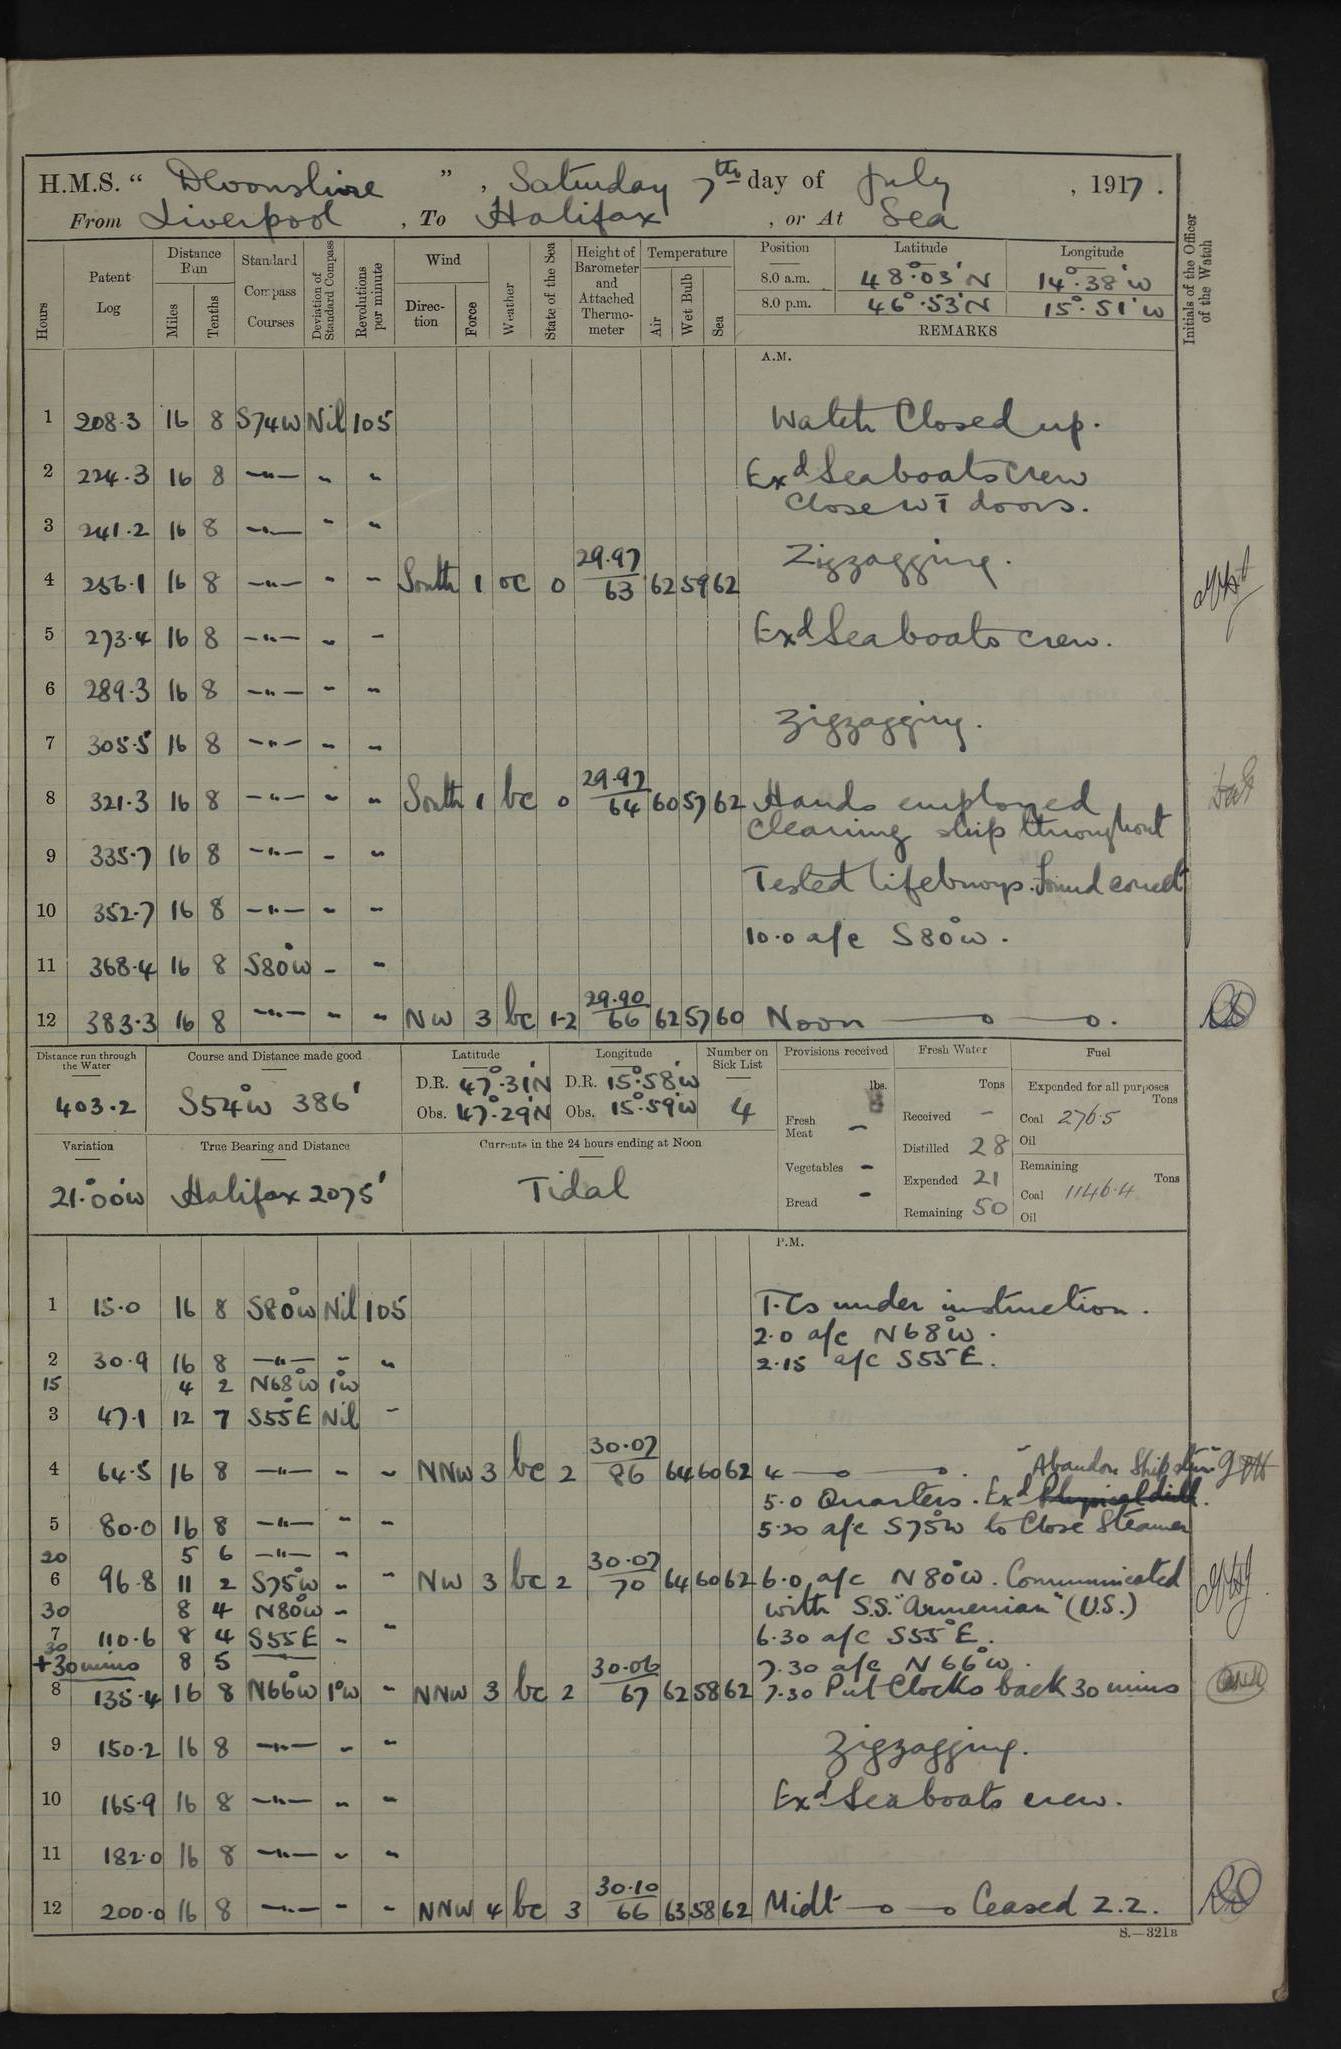 H.M.S. “ Devonshire ” , Saturday 7th day of July , 1917 .
From Liverpool , To Halifax , or At Sea
Hours
Patent Log
Distance Run
Miles
Tenths
Standard Compass Courses
Deviation of Standard Compass
Revolutions per minute
Wind
Direction
Force
Weather
State of the Sea
Height of Barometer and Attached Thermometer
Temperature
Air
Wet Bulb
Sea
Position Latitude Longitude
8.0 a.m. 48°.03'N 14°.38'W
8.0 p.m. 46°.53'N 15°.51'W
REMARKS
Initials of the Officer of the Watch
A.M.
1 208.3 16 8 S74W Nil 105 Watch Closed up.
2 224.3 16 8 —"— " " Exd Seaboats crew
Close WT doors.
3 241.2 16 8 —"— " "
Zigzagging.
4 256.1 16 8 —"— " " South 1 oc 0 29.97/63 62 59 62
5 273.4 16 8 —"— " " Exd Seaboats crew.
6 289.3 16 8 —"— " "
Zigzagging.
7 305.5 16 8 —"— " "
8 321.3 16 8 —"— " " South 1 bc 0 29.97/64 60 57 62 Hands employed
Clearing ship throughout
9 335.7 16 8 —"— " "
Tested lifebuoys. Found correct
10 352.7 16 8 —"— " "
10.0 a/c S80°W.
11 368.4 16 8 S80°W " "
12 383.3 16 8 —"— " " NW 3 bc 1-2 29.90/66 62 57 60 Noon
Distance run through the Water
403.2
Course and Distance made good
S54°W 386'
Latitude
D.R. 47°.31'N
Obs. 47°.29'N
Longitude
D.R. 15°.58'W
Obs. 15°.59'W
Number on Sick List
4
Variation
21.°00'W
True Bearing and Distance
Halifax 2075'
Currents in the 24 hours ending at Noon
Tidal
Provisions received
lbs.
Fresh Meat –
Vegetables –
Bread –
Fresh Water
Tons
Received –
Distilled 28
Expended 21
Remaining 50
Fuel
Expended for all purposes
Tons
Coal 276.5
Oil
Remaining
Tons
Coal 1146.4
Oil
P.M.
1 15.0 16 8 S80°W Nil 105 T.Cs under instruction.
2.0 a/c N68°W.
2 30.9 16 8 —"— " " 2.15 a/c S55°E.
15 4 2 N68°W 1°W
3 47.1 12 7 S55°E Nil "
4 64.5 16 8 —"— " " NNW 3 bc 2 30.07/86 64 60 62 4 "Abandon Ship stns"
5.0 Quarters. Exd Physical drill.
5 80.0 16 8 —"— " " 5.20 a/c S75°W to Close Steamer
20 5 6 —"— "
6 96.8 11 2 S75°W " " NW 3 bc 2 30.07/70 64 60 62 6.0 a/c N80°W. Communicated
30 8 4 N80°W " with S.S. "Armenian" (U.S.)
7 110.6 8 4 S55E " " 6.30 a/c S55°E.
30
+30 mins 8 5 — 7.30 a/c N66°W.
8 135.4 16 8 N66°W 1°W " NNW 3 bc 2 30.06/67 62 58 62 7.30 Put Clocks back 30 mins
9 150.2 16 8 —"— " " Zigzagging.
10 165.9 16 8 —"— " " Exd Seaboats crew.
11 182.0 16 8 —"— " "
12 200.0 16 8 —"— " " NNW 4 bc 3 30.10/66 63 58 62 Midt Ceased Z.Z.
S.—321B